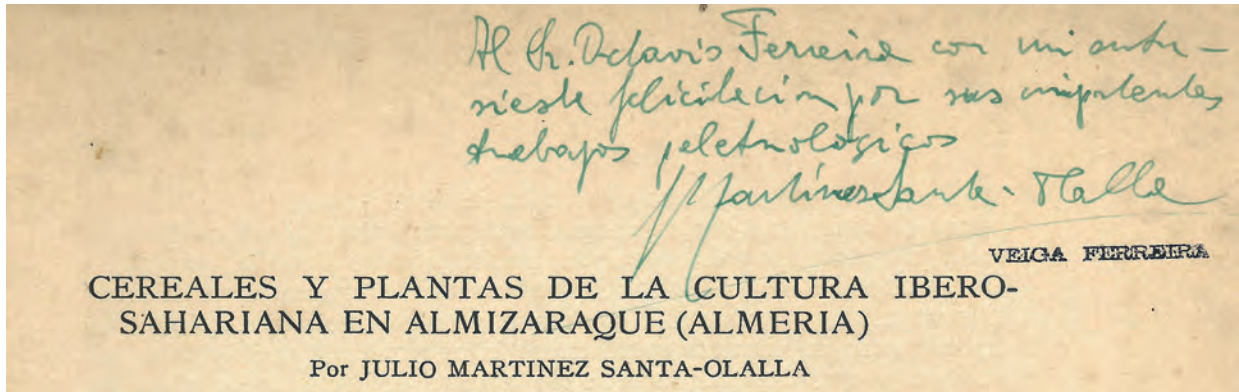 Al Sr. Octavio Ferreira con mi entu-
siasta felicitación por sus importantes
trabajos paletnologicos
J Martínez Santa-Olalla
VEIGA FERREIRA
CEREALES Y PLANTAS DE LA CULTURA IBERO-
SAHARIANA EN ALMIZARAQUE (ALMERIA)
Por JULIO MARTINEZ SANTA-OLALLA